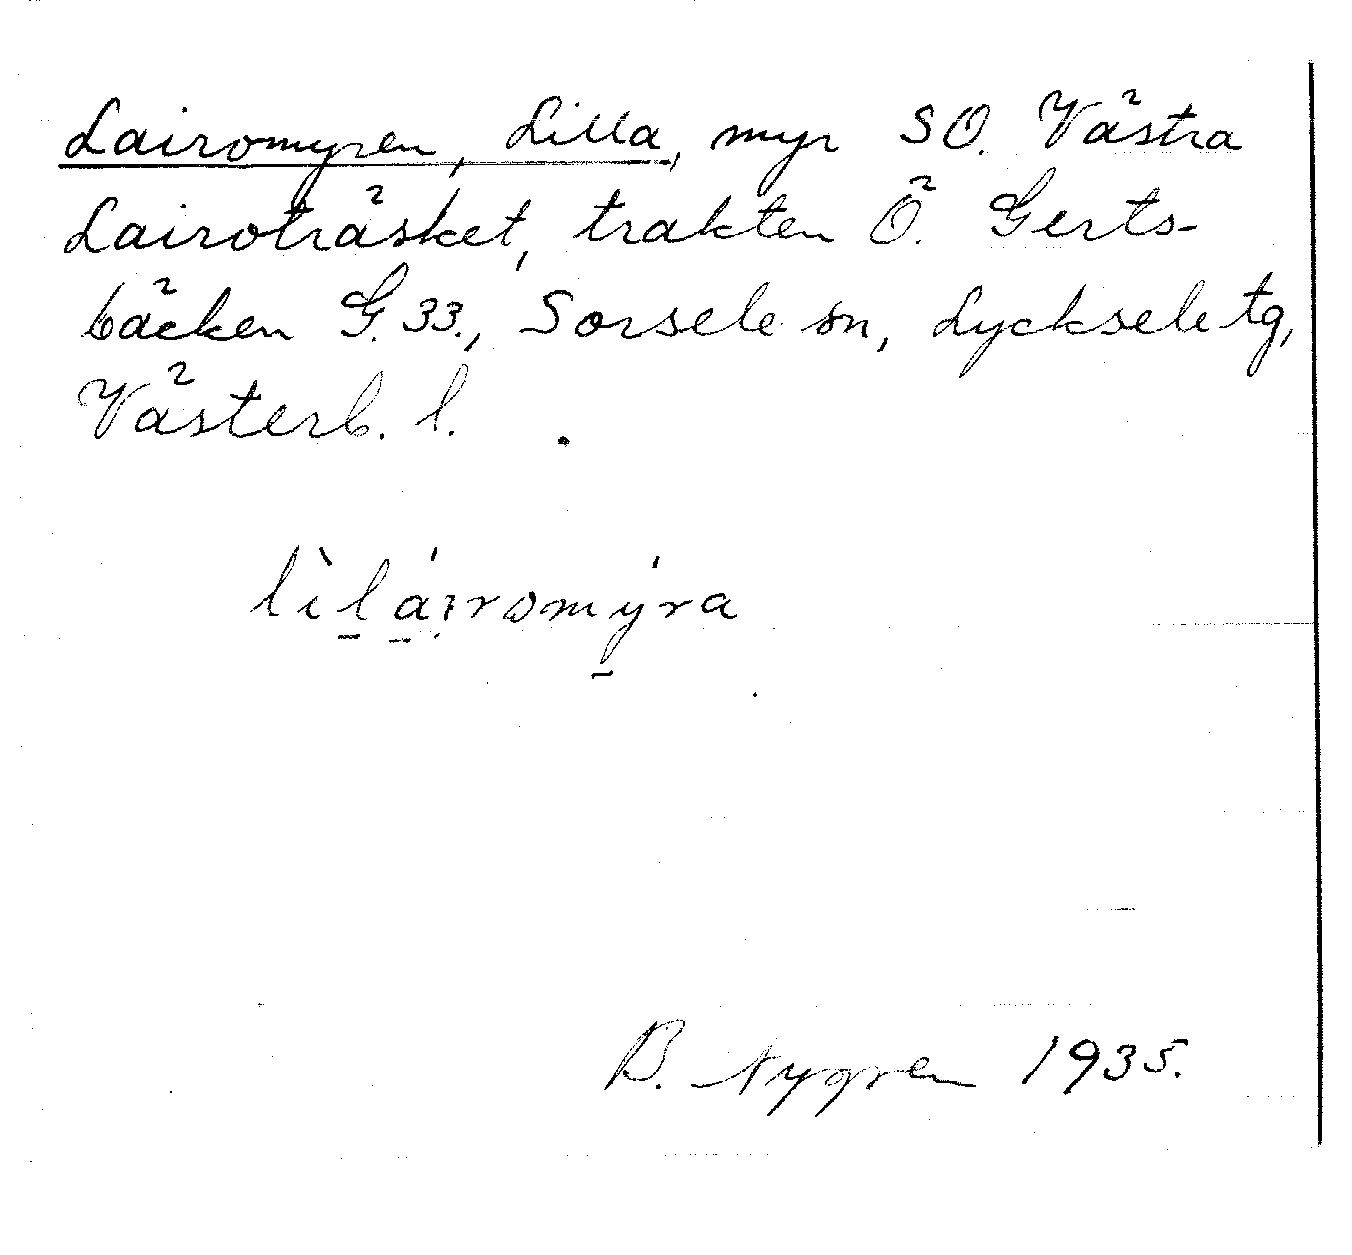 Lairomyren, Lilla, myr SO. Västra
Lairoträsket, trakten Ö. Gerts-
bäcken G. 33., Sorsele sn, Lycksele tg,
Västerb. l.
lìláıromýra
B. Nygren 1935.